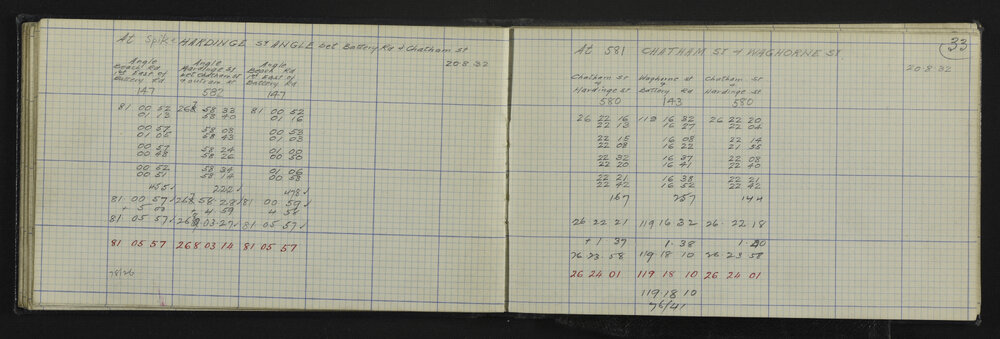 At Spike HARDINGE St ANGLE bet Battery Rd & Chatham St
20·8·32
Angle Angle Angle
Beach Rd Hardinge St Beach Rd
1st East of bet Chatham St 1st East of
Battery Rd Battery Rd
147 582 147
81 00 52 268 58 33 81 00 52
01 13 58 40 01 16
00 57 58 08 00 53
01 05 58 43 01 03
00 57 58 24 01 00
00 48 58 26 00 50
00 52 58 34 01 06
00 51 58 14 00 58
455✓ 222✓ 478✓
81 00 57✓ 267 58 28✓ 81 00 59✓
+ 5 00 + 4 59 4 58
81 05 57✓ 268 03·27✓ 81 05 57✓
81 05 57 268 03 14 81 05 57
78/26
33
At 581 CHATHAM ST & WAGHORNE ST
20·8·32
Chatham St Waghorne St Chatham St
& & &
Hardinge St Battery Rd Hardinge St
580 143 580
26 22 16 119 16 32 26 22 20
22 13 16 27 22 04
22 15 16 08 22 14
22 08 16 22 21 55
22 32 16 37 22 08
22 20 16 41 22 40
22 21 16 38 22 21
22 42 16 52 22 42
167 257 144
26 22 21 119 16 32 26·22 18
+1·37 1·38 1·40
26 23·58 119·18 10 26 23 58
26 24 01 119 18 10 26 24 01
119·18 10
76/41